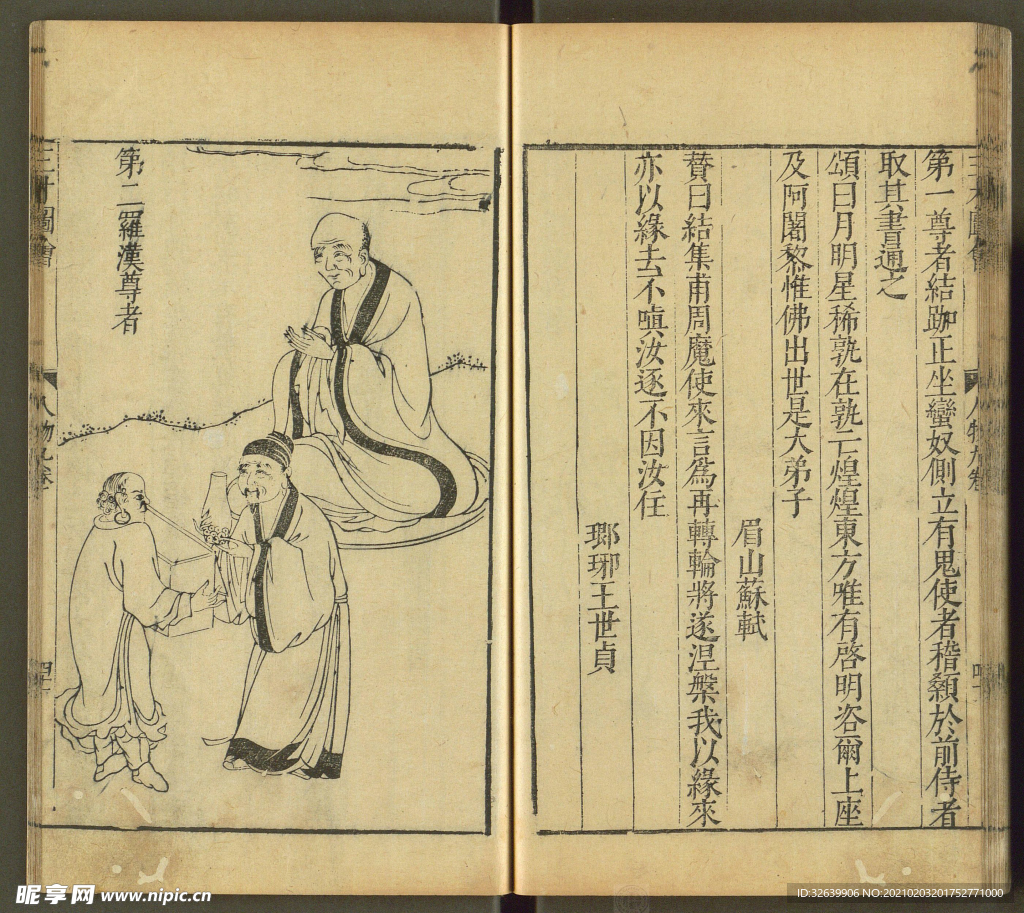 三才圖會
人物九卷
第一尊者結跏正坐蠻奴側立有鬼使者稽顙於前侍者
取其書通之
頌曰月明星稀孰在孰亡煌煌東方唯有啓明咨爾上座
及阿闍黎惟佛出世是大弟子
眉山蘇軾
贊曰結集甫周魔使來言爲再轉輪將遂涅槃我以緣來
亦以緣去不嗔汝逐不因汝任
瑯琊王世貞
第二羅漢尊者
三才圖會
人物九卷
昵享网 www.nipic.cn
ID:32639906 NO:20210203201752771000